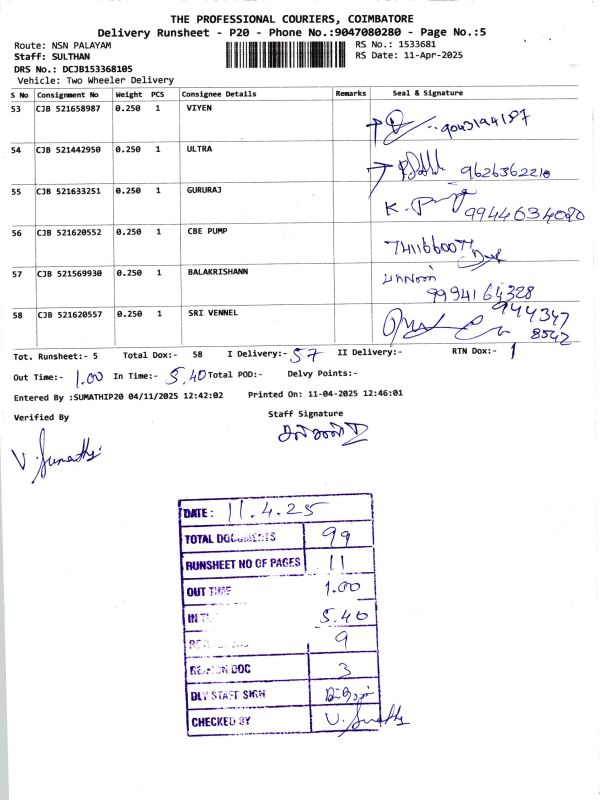 THE PROFESSIONAL COURIERS, COIMBATORE
Delivery Runsheet - P20 - Phone No.:9047080280 - Page No.:5
Route: NSN PALAYAM
RS No.: 1533681
Staff: SULTHAN
RS Date: 11-Apr-2025
DRS No.: DCJB153368105
Vehicle: Two Wheeler Delivery
S No Consignment No Weight PCS Consignee Details Remarks Seal & Signature
53 CJB 521658987 0.250 1 VIYEN 9043194187
54 CJB 521442950 0.250 1 ULTRA 9626362210
55 CJB 521633251 0.250 1 GURURAJ K. 9944634080
56 CJB 521620552 0.250 1 CBE PUMP
57 CJB 521569930 0.250 1 BALAKRISHANN 9994164328
58 CJB 521620557 0.250 1 SRI VENNEL 944347
8542
Tot. Runsheet:- 5 Total Dox:- 58 I Delivery:- 57 II Delivery:- RTN Dox:- 1
Out Time:- 1.00 In Time:- 5.40 Total POD:- Delvy Points:-
Entered By :SUMATHIP20 04/11/2025 12:42:02 Printed On: 11-04-2025 12:46:01
Verified By Staff Signature
V. Sumathy
DATE: 11.4.25
TOTAL DOCUMENTS 99
RUNSHEET NO OF PAGES 11
OUT TIME 1.00
IN 5.40
9
DOC 3
DLY STAFF SIGN
CHECKED BY V. Sumathy